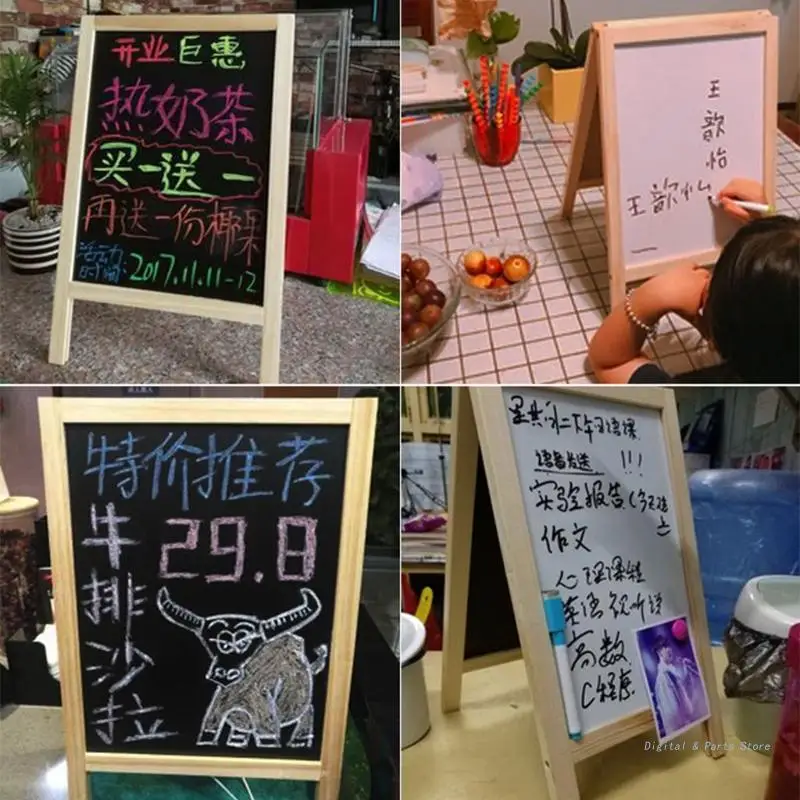 开业巨惠
热奶茶
买一送一
再送一份椰果
活动
时间:2017.11.11-12
王
歆
怡
王歆怡
特价推荐
牛排沙拉
29.8
语音发送 !!!
实验报告
作文
心理课程
英语视听说
高数
C程序
Digital & Parts Store